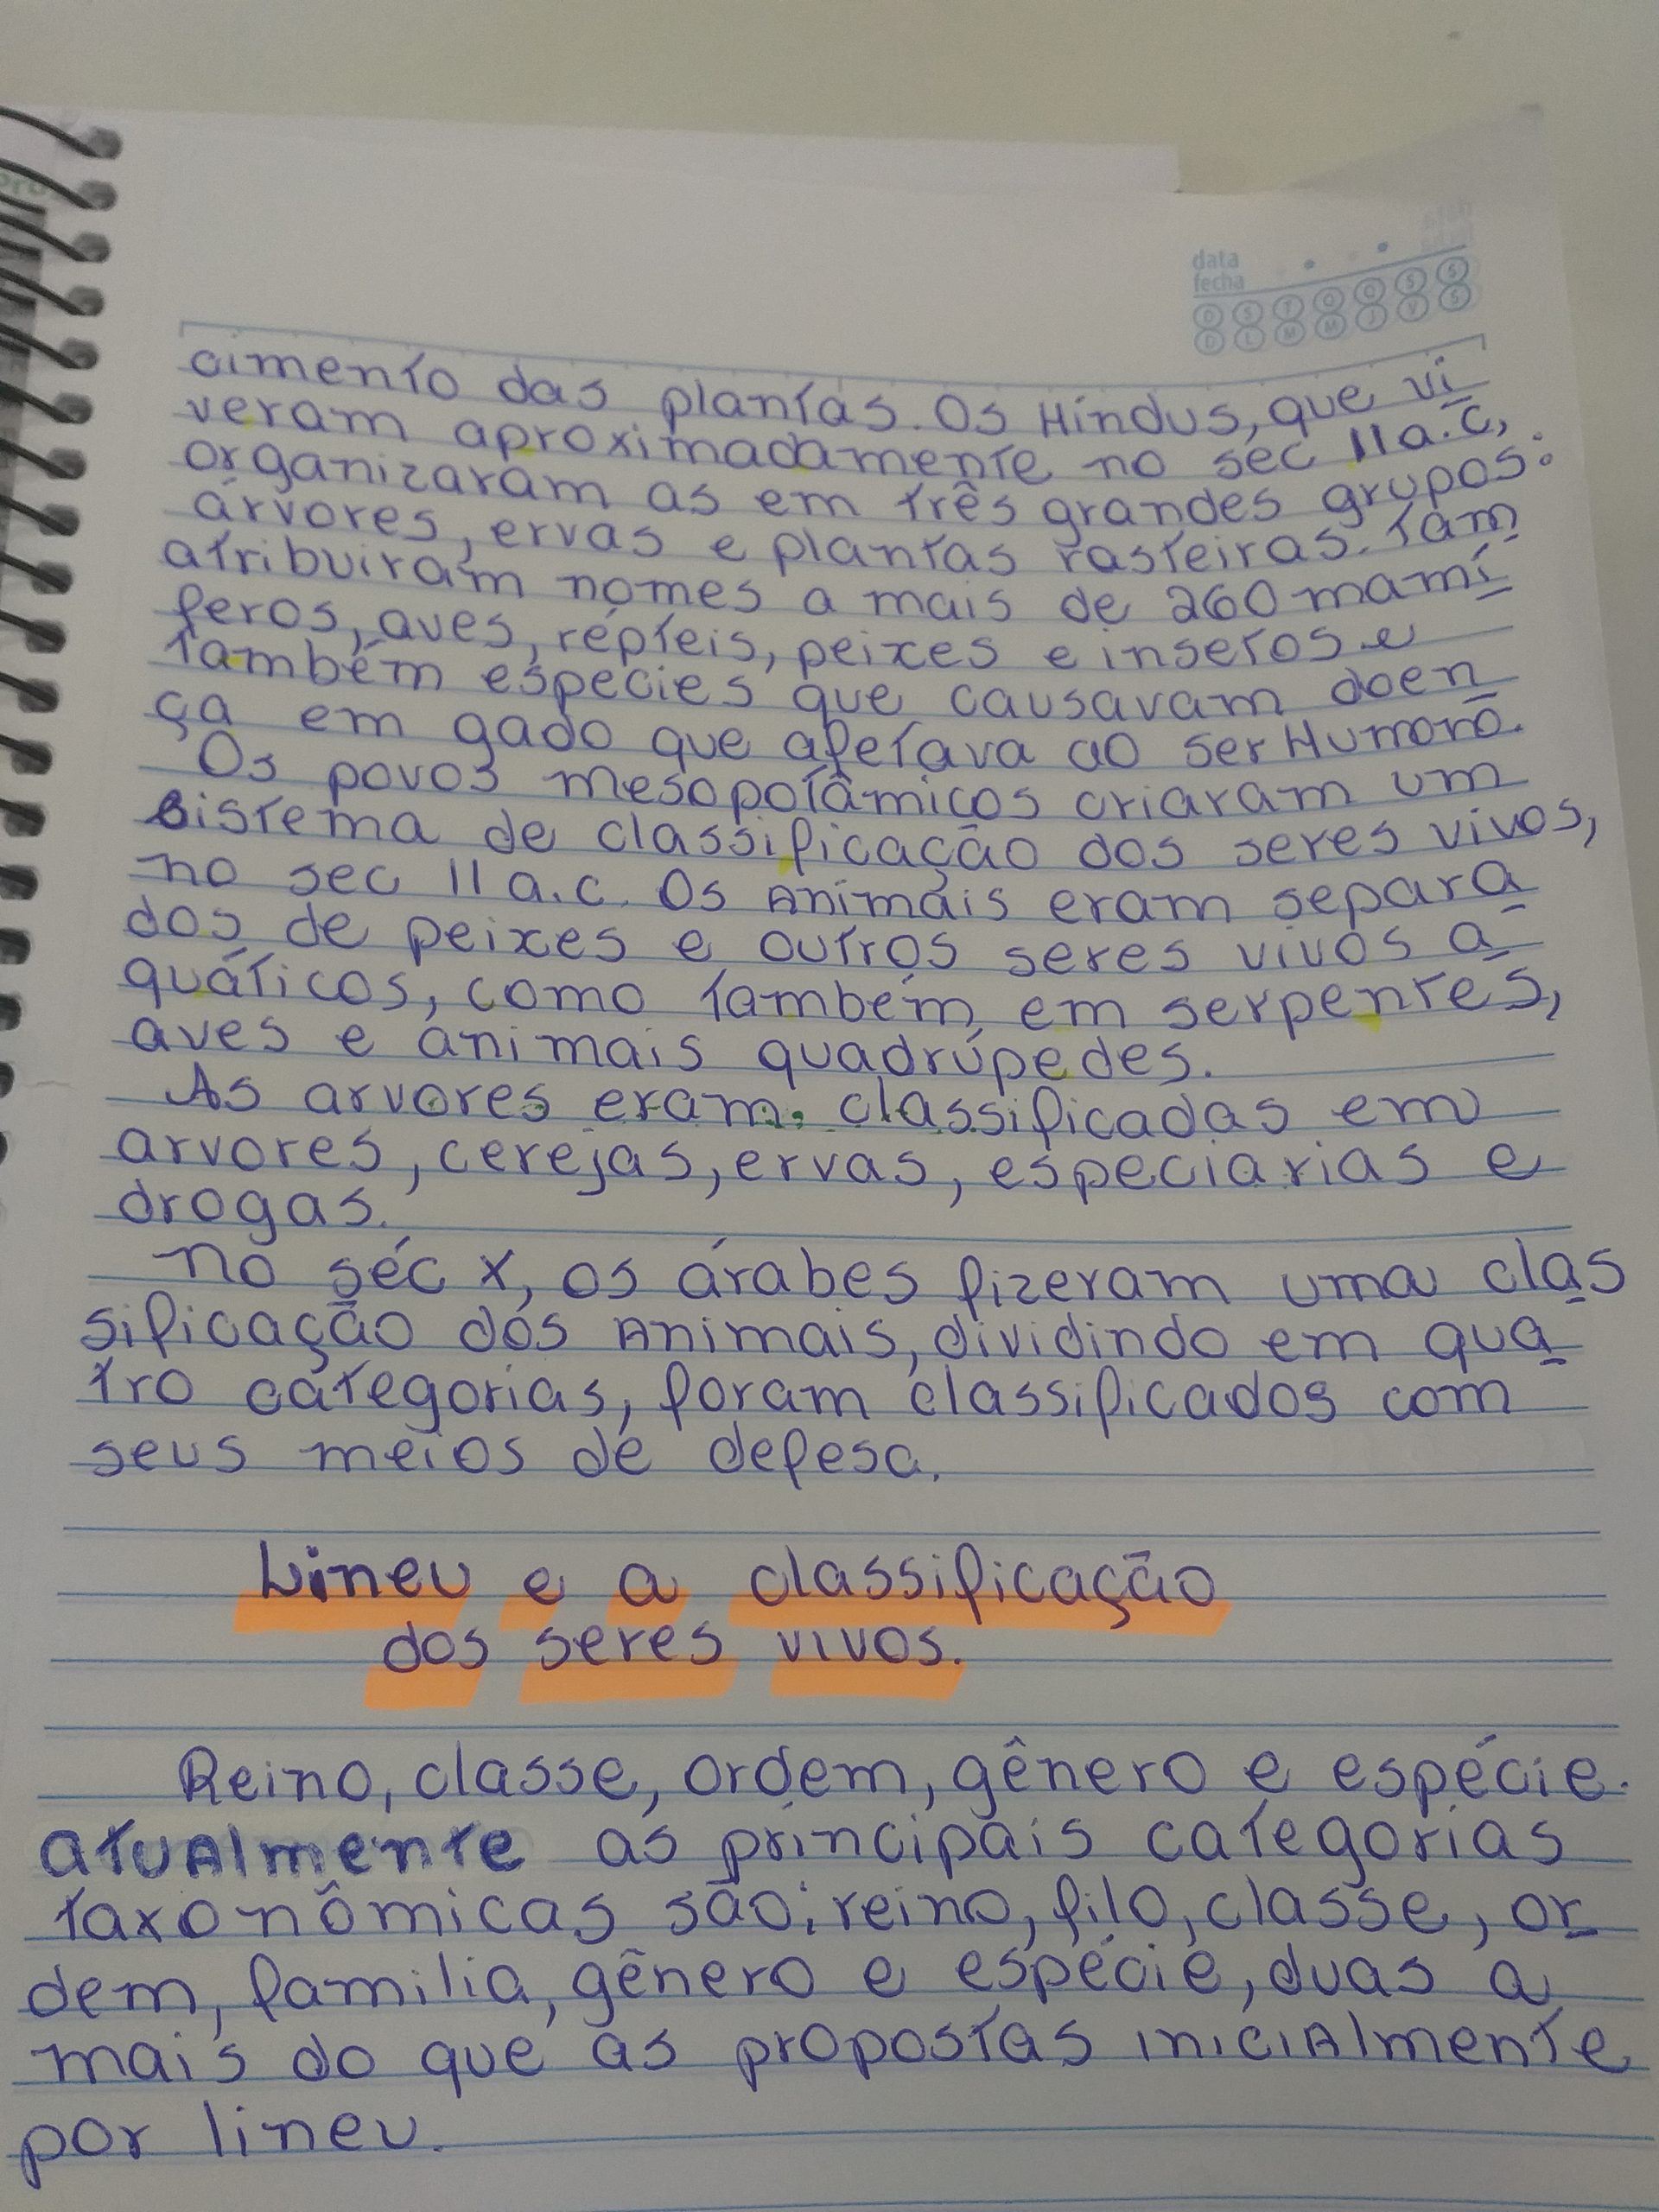 data
fecha
D S T Q Q S S
D L M M J V S
cimento das plantas. Os Hindus, que vi
veram aproximadamente no sec II a.c,
organizaram as em três grandes grupos:
árvores, ervas e plantas rasteiras. Tam
atribuiram nomes a mais de 260 mamí
feros, aves, répteis, peixes e insetos e
também espécies que causavam doen
ça em gado que afetava ao ser Humano.
Os povos mesopotâmicos criaram um
sistema de classificação dos seres vivos,
no sec II a.c. Os Animais eram separa
dos de peixes e outros seres vivos a
quáticos, como também em serpentes,
aves e animais quadrúpedes.
As arvores eram classificadas em
arvores, cerejas, ervas, especiarias e
drogas.
no séc X, os árabes fizeram uma clas
sificação dos Animais, dividindo em qua
tro categorias, foram classificados com
seus meios de defesa.
Lineu e a classificação
dos seres vivos.
Reino, classe, ordem, gênero e espécie.
atuAlmente as principais categorias
taxonômicas são: reino, filo, classe, or
dem, familia, gênero e espécie, duas a
mais do que as propostas iniciAlmente
por lineu.